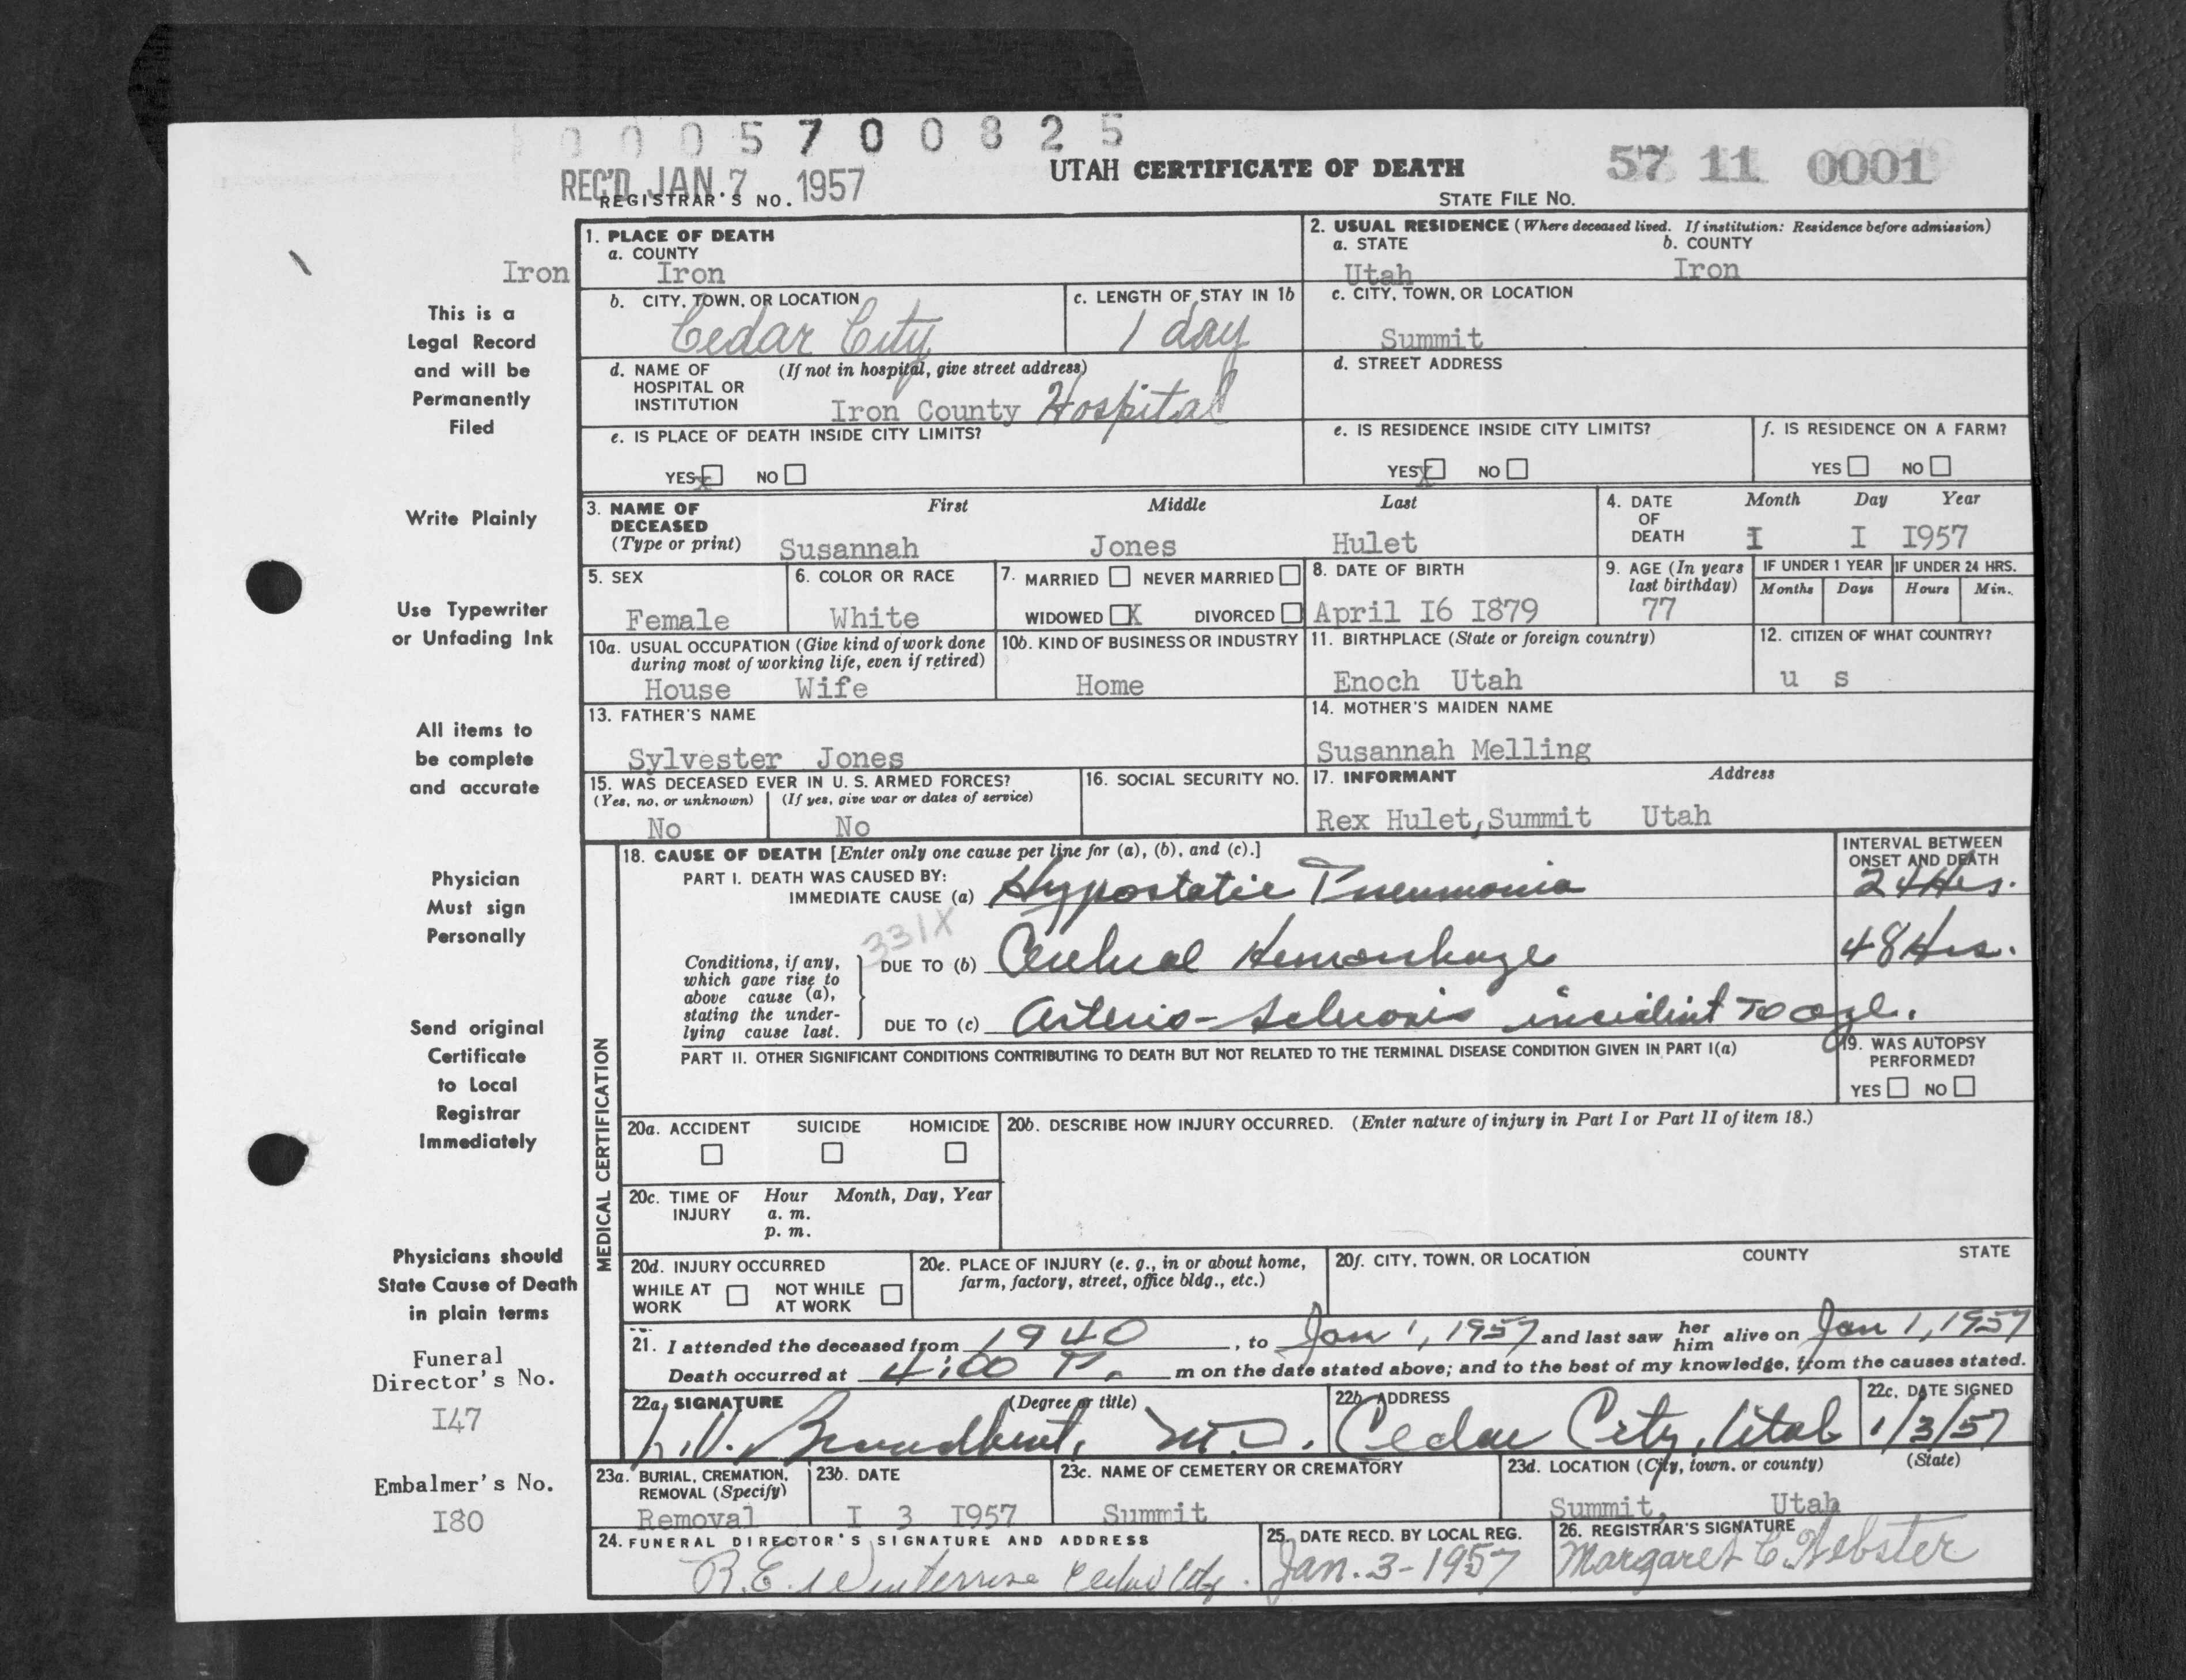 0005700825
REC'D JAN. 7 1957
REGISTRAR'S NO.
UTAH CERTIFICATE OF DEATH
STATE FILE NO.
57 11 0001
Iron
This is a
Legal Record
and will be
Permanently
Filed
Write Plainly
Use Typewriter
or Unfading Ink
All items to
be complete
and accurate
Physician
Must sign
Personally
Send original
Certificate
to Local
Registrar
Immediately
Physicians should
State Cause of Death
in plain terms
Funeral
Director's No.
I47
Embalmer's No.
I80
1. PLACE OF DEATH
a. COUNTY
Iron
2. USUAL RESIDENCE (Where deceased lived. If institution: Residence before admission)
a. STATE b. COUNTY
Utah Iron
b. CITY, TOWN, OR LOCATION
Cedar City
c. LENGTH OF STAY IN 1b
1 day
c. CITY, TOWN, OR LOCATION
Summit
d. NAME OF (If not in hospital, give street address)
HOSPITAL OR
INSTITUTION Iron County Hospital
d. STREET ADDRESS
e. IS PLACE OF DEATH INSIDE CITY LIMITS?
YES X NO
e. IS RESIDENCE INSIDE CITY LIMITS?
YES X NO
f. IS RESIDENCE ON A FARM?
YES NO
3. NAME OF First Middle Last
DECEASED
(Type or print) Susannah Jones Hulet
4. DATE Month Day Year
OF
DEATH I I I957
5. SEX
Female
6. COLOR OR RACE
White
7. MARRIED NEVER MARRIED
WIDOWED X DIVORCED
8. DATE OF BIRTH
April I6 I879
9. AGE (In years
last birthday)
77
IF UNDER 1 YEAR
Months Days
IF UNDER 24 HRS.
Hours Min.
10a. USUAL OCCUPATION (Give kind of work done
during most of working life, even if retired)
House Wife
10b. KIND OF BUSINESS OR INDUSTRY
Home
11. BIRTHPLACE (State or foreign country)
Enoch Utah
12. CITIZEN OF WHAT COUNTRY?
u s
13. FATHER'S NAME
Sylvester Jones
14. MOTHER'S MAIDEN NAME
Susannah Melling
15. WAS DECEASED EVER IN U. S. ARMED FORCES?
(Yes, no, or unknown) (If yes, give war or dates of service)
No No
16. SOCIAL SECURITY NO.
17. INFORMANT Address
Rex Hulet, Summit Utah
MEDICAL CERTIFICATION
18. CAUSE OF DEATH [Enter only one cause per line for (a), (b), and (c).]
INTERVAL BETWEEN
ONSET AND DEATH
PART I. DEATH WAS CAUSED BY:
IMMEDIATE CAUSE (a) Hypostatic Pneumonia 24 Hrs.
331X
Conditions, if any,
which gave rise to
above cause (a),
stating the under-
lying cause last.
DUE TO (b) Cerebral Hemorrhage 48 Hrs.
DUE TO (c) Arterio-Sclerosis incident to age.
PART II. OTHER SIGNIFICANT CONDITIONS CONTRIBUTING TO DEATH BUT NOT RELATED TO THE TERMINAL DISEASE CONDITION GIVEN IN PART I(a)
19. WAS AUTOPSY
PERFORMED?
YES NO
20a. ACCIDENT SUICIDE HOMICIDE
20b. DESCRIBE HOW INJURY OCCURRED. (Enter nature of injury in Part I or Part II of item 18.)
20c. TIME OF Hour Month, Day, Year
INJURY a. m.
p. m.
20d. INJURY OCCURRED
WHILE AT NOT WHILE
WORK AT WORK
20e. PLACE OF INJURY (e. g., in or about home,
farm, factory, street, office bldg., etc.)
20f. CITY, TOWN, OR LOCATION COUNTY STATE
21. I attended the deceased from 1940, to Jan 1, 1957 and last saw her him alive on Jan 1, 1957
Death occurred at 4:00 P. m on the date stated above; and to the best of my knowledge, from the causes stated.
22a. SIGNATURE (Degree or title)
Broadbent, M.D.
22b. ADDRESS
Cedar City, Utah
22c. DATE SIGNED
1/3/57
23a. BURIAL, CREMATION,
REMOVAL (Specify)
Removal
23b. DATE
I 3 I957
23c. NAME OF CEMETERY OR CREMATORY
Summit
23d. LOCATION (City, town, or county) (State)
Summit, Utah
24. FUNERAL DIRECTOR'S SIGNATURE AND ADDRESS
R.E. Winterrose Cedar City.
25. DATE RECD. BY LOCAL REG.
Jan. 3-1957
26. REGISTRAR'S SIGNATURE
Margaret C. Webster